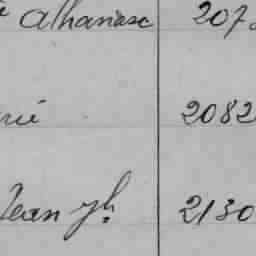 Athanase 207
rié 2082
Jean Jh. 2130